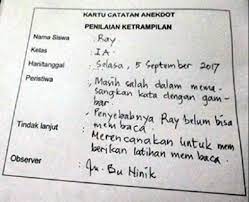 KARTU CATATAN ANEKDOT
PENILAIAN KETRAMPILAN
Nama Siswa : Ray
Kelas : IA
Hari/tanggal : Selasa, 5 September 2017
Peristiwa : Masih salah dalam mema-
sangkan kata dengan gam-
bar.
Penyebabnya Ray belum bisa
membaca.
Tindak lanjut : Merencanakan untuk mem
berikan latihan membaca.
Observer : Bu Ninik